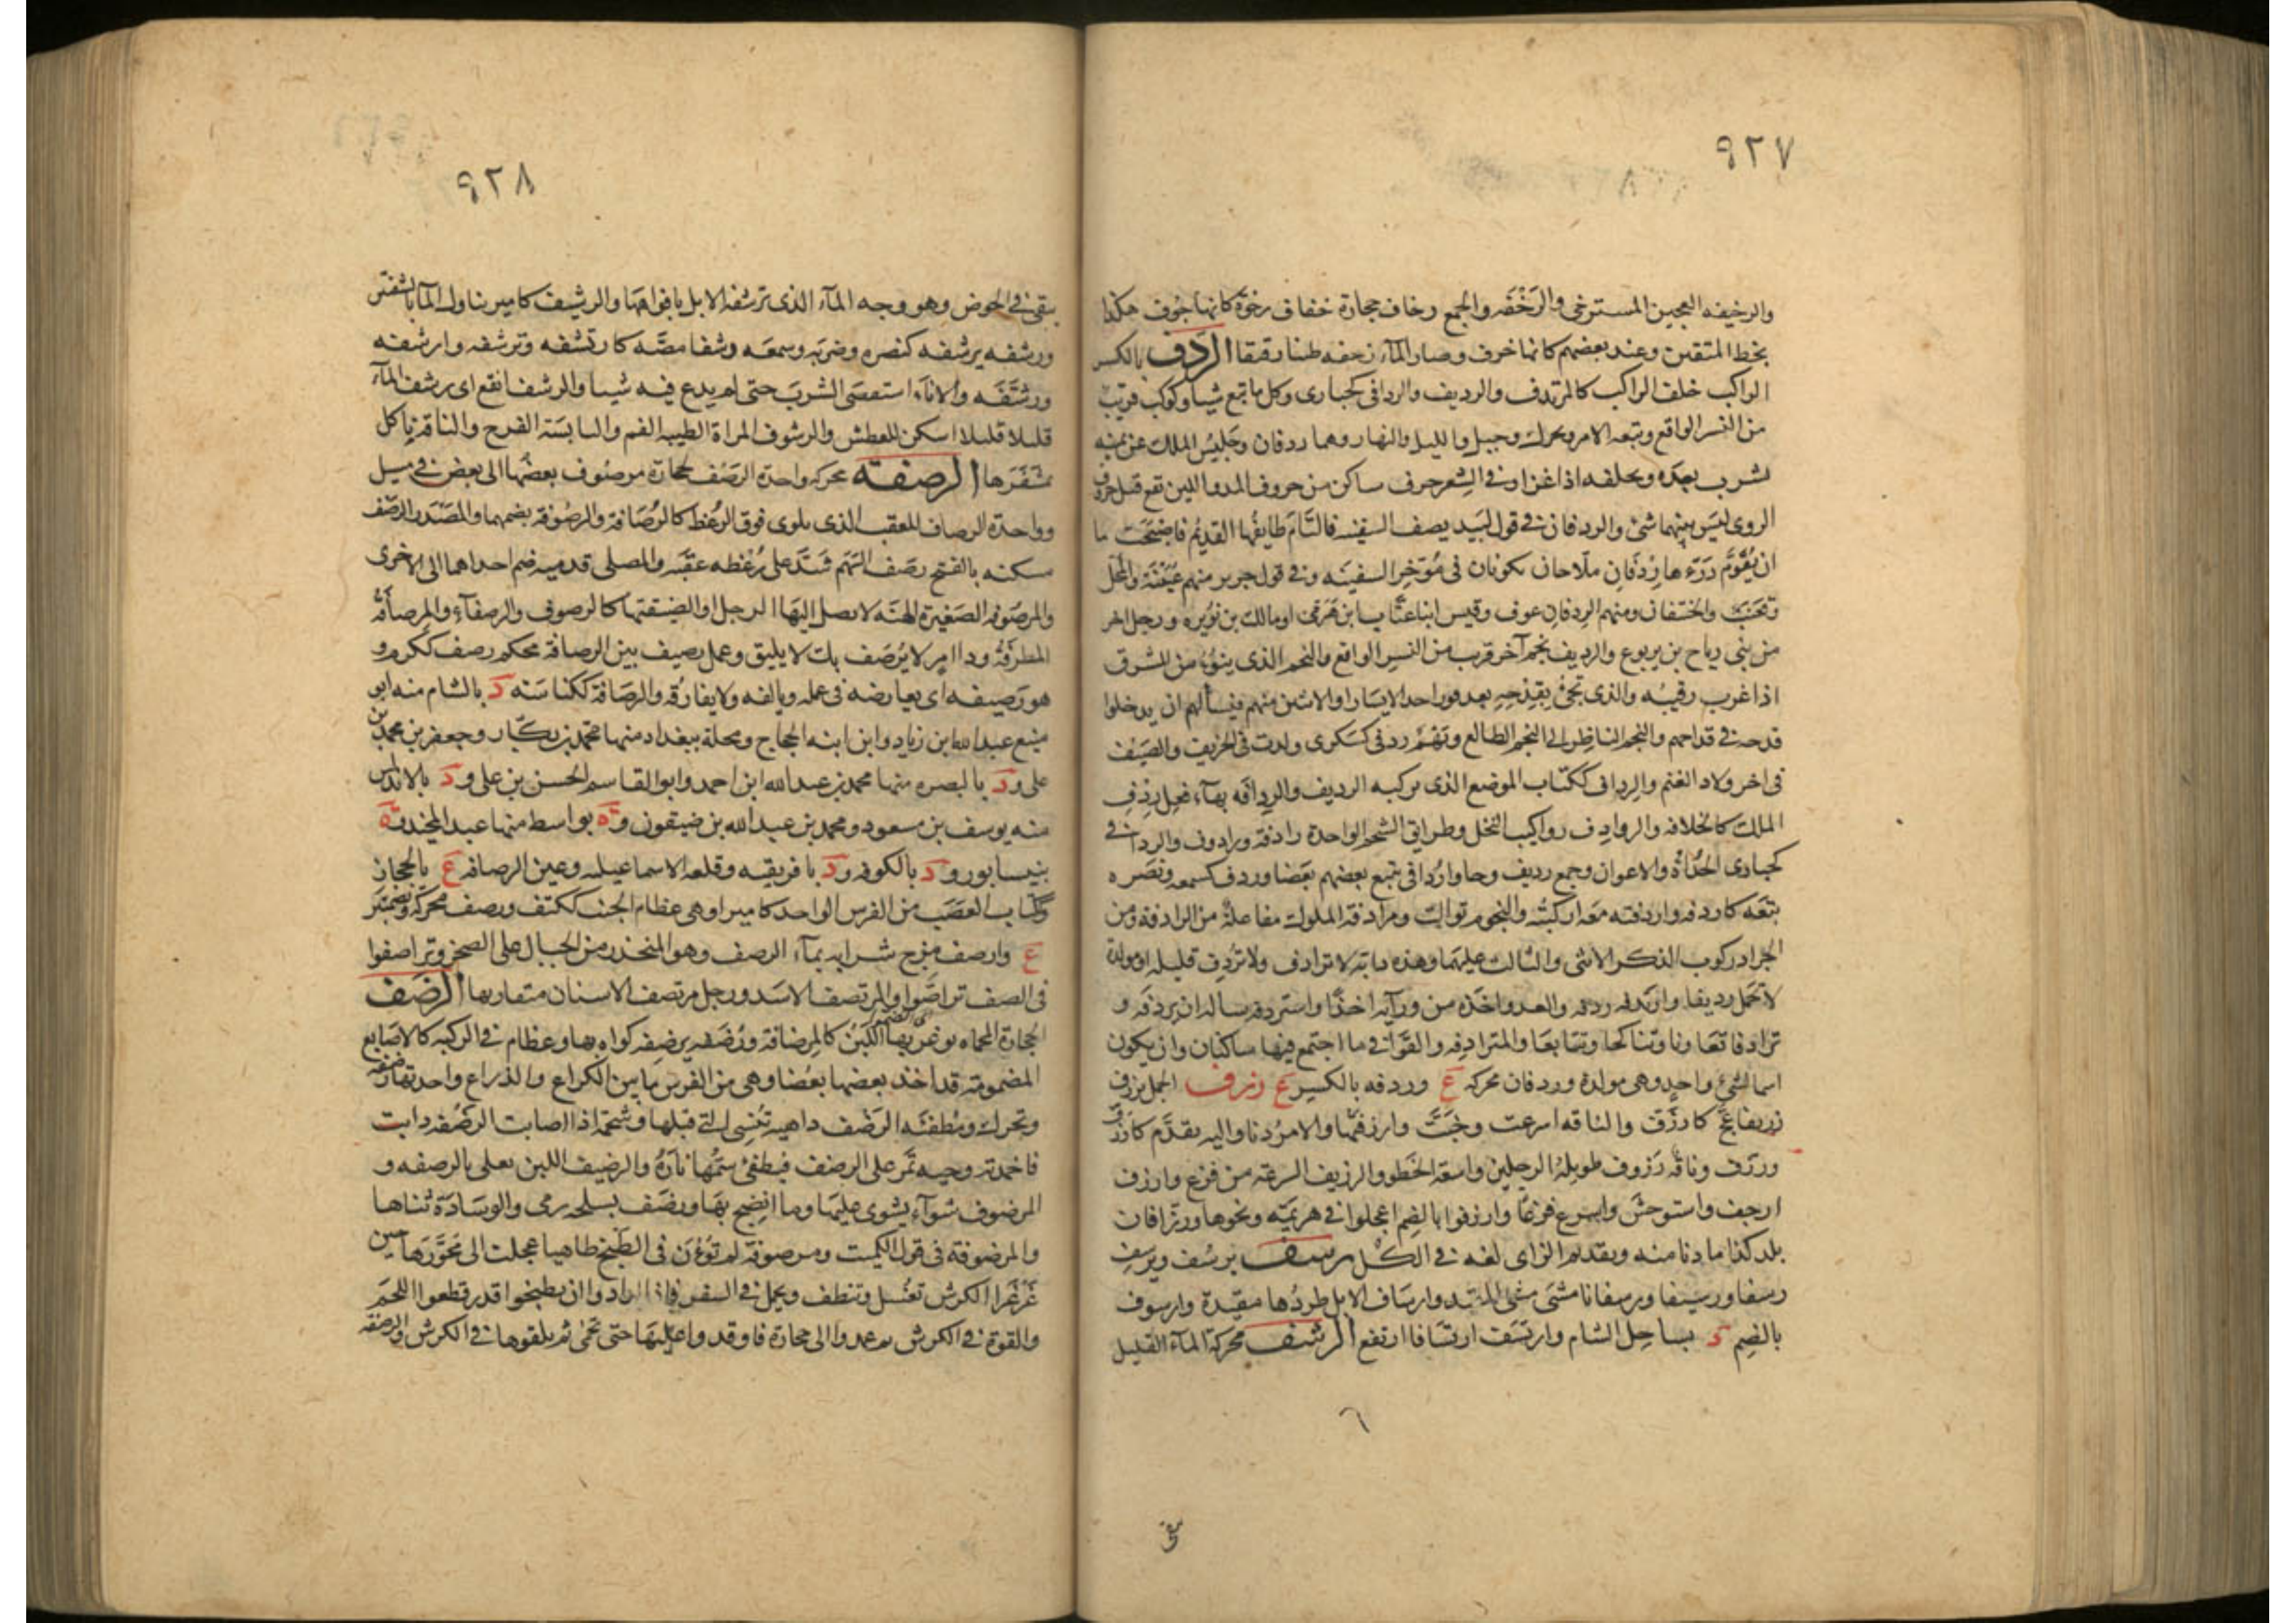 ٩٢٧
والرخيفه العجين المسترخى والرَخْفَه والجمع رخاف حجارة خفاف رخوة كانها جُوف هكذا
بخط المتقنين وعند بعضهم كانها خرف وصار الماء رخفه طينا رقيقا الرِدف بالكسر
الراكب خلف الراكب كالمرتدف والرديف والردافى كحبارى وكل ما تبع شيا وكوكب قريب
من النسر الواقع وتبعه الامر ويحرك وجبل والليل والنهار وهما ردفان وجَليسُ الملك عن يمينه
يشرب بعده ويخلفه اذا غزا وفى الشعر حرف ساكن من حروف المد واللين تقع قبل حرف
الروى ليسَ بينهما شئ والردفان فى قول لبَيد يصف السفينه فالتامَ طايقُها القديمُ فاصبَحَت ما
ان يُقَوِّمُ دَرْءَها رِدْفَانِ ملّاحان يكونان فى مُوَّخرِ السفينَه وفى قول جرير منهم عُتَيْبَة والمُحِل
وقعنَب والحنتفان ومنهم الردفانِ عوف وقيس ابنا عتّاب بن هَرَمى او مالك بن نُوَيره ورجل اخر
من بنى رياح بن يربوع والرديف نجم آخر قرب من النسر الواقع والنجم الذى ينوُء من المشرق
اذا غرب رقيبُه والذى تجئ بقِدْحِه بعد فوز احد الايسار او الاثنين منهم فيَسألهم ان يدخلوا
قدحه فى قداحهم والنجم الناظر الى النجم الطالع وبَهْمُ ردفى كسَكرى ولدت فى الخريف والصَيْف
فى اخر ولاد الغنم والرِداف ككتاب الموضع الذى يركبه الرديف والرِدافه بهآء فعل رِدْفِ
الملك كالخلافه والروادِف رواكيب النخل وطرائق الشحم الواحدة رادفة ورادوف والردافى
كحبارى الحُدَاةُ والاعوان وجمع رديف وجاوا رُدافى يتبع بعضهم بعَضا وردف كسمعه ونصَره
بتعَه كاردفه واردفته معَه اركبتُه والنجوم توالت ومرادفة الملوك مفاعلةُ من الرادفه ومن
الجراد ركوب الذكر الانثى والثالث عليهَما وهذه دابة لا ترادف ولا تُردِف قليله او مولدة
لا تَحْمل رديفا وارتدفه ردفه والعدو اخذه من ورآئه اخذًا واستردفه ساله ان يردفَه و
ترادفا تعَاونا وتناكحا وتتَابعَا والمترادِفه والقوَافى ما اجتمع فيها ساكنان وان يكون
اسما لشيئ واحِدٍ وهى مولدة وردفان محركه عَ وردفه بالكسر عَ رزف الجمل يرزف
زريفا عَجَّ كارزَف والناقه اسرعت وخَبَّت وارزفتُها والامر دنا واليه يقدَّم كارزف
ورزف وناقة رَزوف طويلةُ الرجلين واسعة الخَطو والرزيف السرعة من فزع وارزف
ارجف واستوحشَ واسرع فزعًا وارزفوا بالضم اعجلوا فى هزيمَه ونحوها ورزافات
بلد كذا ما دنا منه وبقديم الزاى لغه فى الكل رسف يرسُف ويرسِف
رسفا ورسيفا ورسفانا مشَى مشى المقيد وارسَاف الابل طردُها مقيدة وارسوف
بالضِم دَ بساحِل الشام وارتسَف ارتسَافا ارتفع الرشف محركة المآء القليل
٦
يبقى
٩٢٨
يبقى فى الحوض وهو وجه المآء الذى ترشفه الابل بافواهها والرشيف كامير تناول المآء بالشفتين
ورشفه يرشفه كنصره وضربَه وسمعَه رشفا مصَّه كارتشفه وترشفه وارشفه
ورشَّفَه والاناءَ استقصَى الشربَ حتى لم يدع فيه شيا والرشف انقع اى ترشف المآء
قليلا قليلا اسكن للعطش والرشوف المراة الطيبه الفم واليابسَة الفرج والناقة تاكل
بمشفَرها الرصفة محركه واحدة الرَصَف لحجارة مرصُوف بعضُها الى بعض فى مسيل
وواحدة الرصاف للعقب الذى يلوى فوق الرُعْظ كالرُصَافة والرصُوفة بضمهما والمصْدر الرصف
مسكنه بالفتح رصَف السَهم شَدَّ على رُعْظه عقبَه والمصلى قدميه ضم احداهما الى الاخرى
والمرصَوفه الصَغيرة الهنَه لا يصل اليهَا الرجل او الضيقتها كالرصوف والرصفآء والمرصَافة
المطرقةُ وذا امر لا يُرصَف بك لا يليق وعمل رصيف بين الرصافة محكم رصف ككرم و
هو رَصيفه اى يعارضه فى عمله ويالفه ولا يفارقه والرصَافة ككناسَه دَ بالشام منه ابو
منيع عبد الله ابن زياد وابن ابنه الحجاج ومحلة ببغداد منها محمد بن بكّار وجعفر بن محمد بن
على ودَ بالبصره منها محمد بن عبد الله ابن احمد وابو القاسم الحسن بن على ودَ بالاندلس
منه يوسف بن مسعود ومحمد بن عبد الله بن ضيقون وةَ بواسط منها عبد المجيد وةَ
بنيسابور ودَ بالكوفه ودَ بافريقيه وقلعه الاسماعيليه وعين الرصافه عَ بالحجاز
وككتاب العصَب من الفرس الواحد كامير او هى عظام الجنب ككتف ورصف محركة وبضمتين
عَ وارصف مزج شرابه بمآء الرصف وهو المنحدر من الجبال على الصخر وتراصفوا
فى الصف تراصّوا والمرتصف الاسَد ورجل مرتصف الاسنان متقاربها الرضَف
الحجارة المحماه يوغر بها اللبَن كالمرضافة ورضفه يرضِفه كواه بها وعظام فى الركبه كالاصَابع
المضمومة قد اخذ بعضها بعضا وهى من الفرس ما بين الكراع والذراع واحدتها رضفه
وتحرك ومُطفئَه الرَضْف داهية تُنْسِى التى قبلها وشحمة اذا اصابت الرضْفه ذابت
فاخمدته وحيه تمر على الرضف فيطفئ سَمُّها نارَهُ والرضيف اللبن يغلى بالرضفه و
المرضوف شوآء يشوى عليهَا وما انضِج بهَا ورضَف بسلحه رمى والوسَادَة ثناها
والمرضوفة فى قول الكميت ومرضوفة لم تُوْنَ فى الطَبخ طاهيا عجلت الى مُحْوَرِّها حين
غَرْغَرا الكرش تغُسل وتنظف ويحمل فى السفر فاذا ارادوا ان يطبخوا قدر قطعوا اللحَم
والقوة فى الكرش ثم عمدوا الى حجارة فاوقدوا عليهَا حتى تحمى ثم يلقوها فى الكرش والرضفه